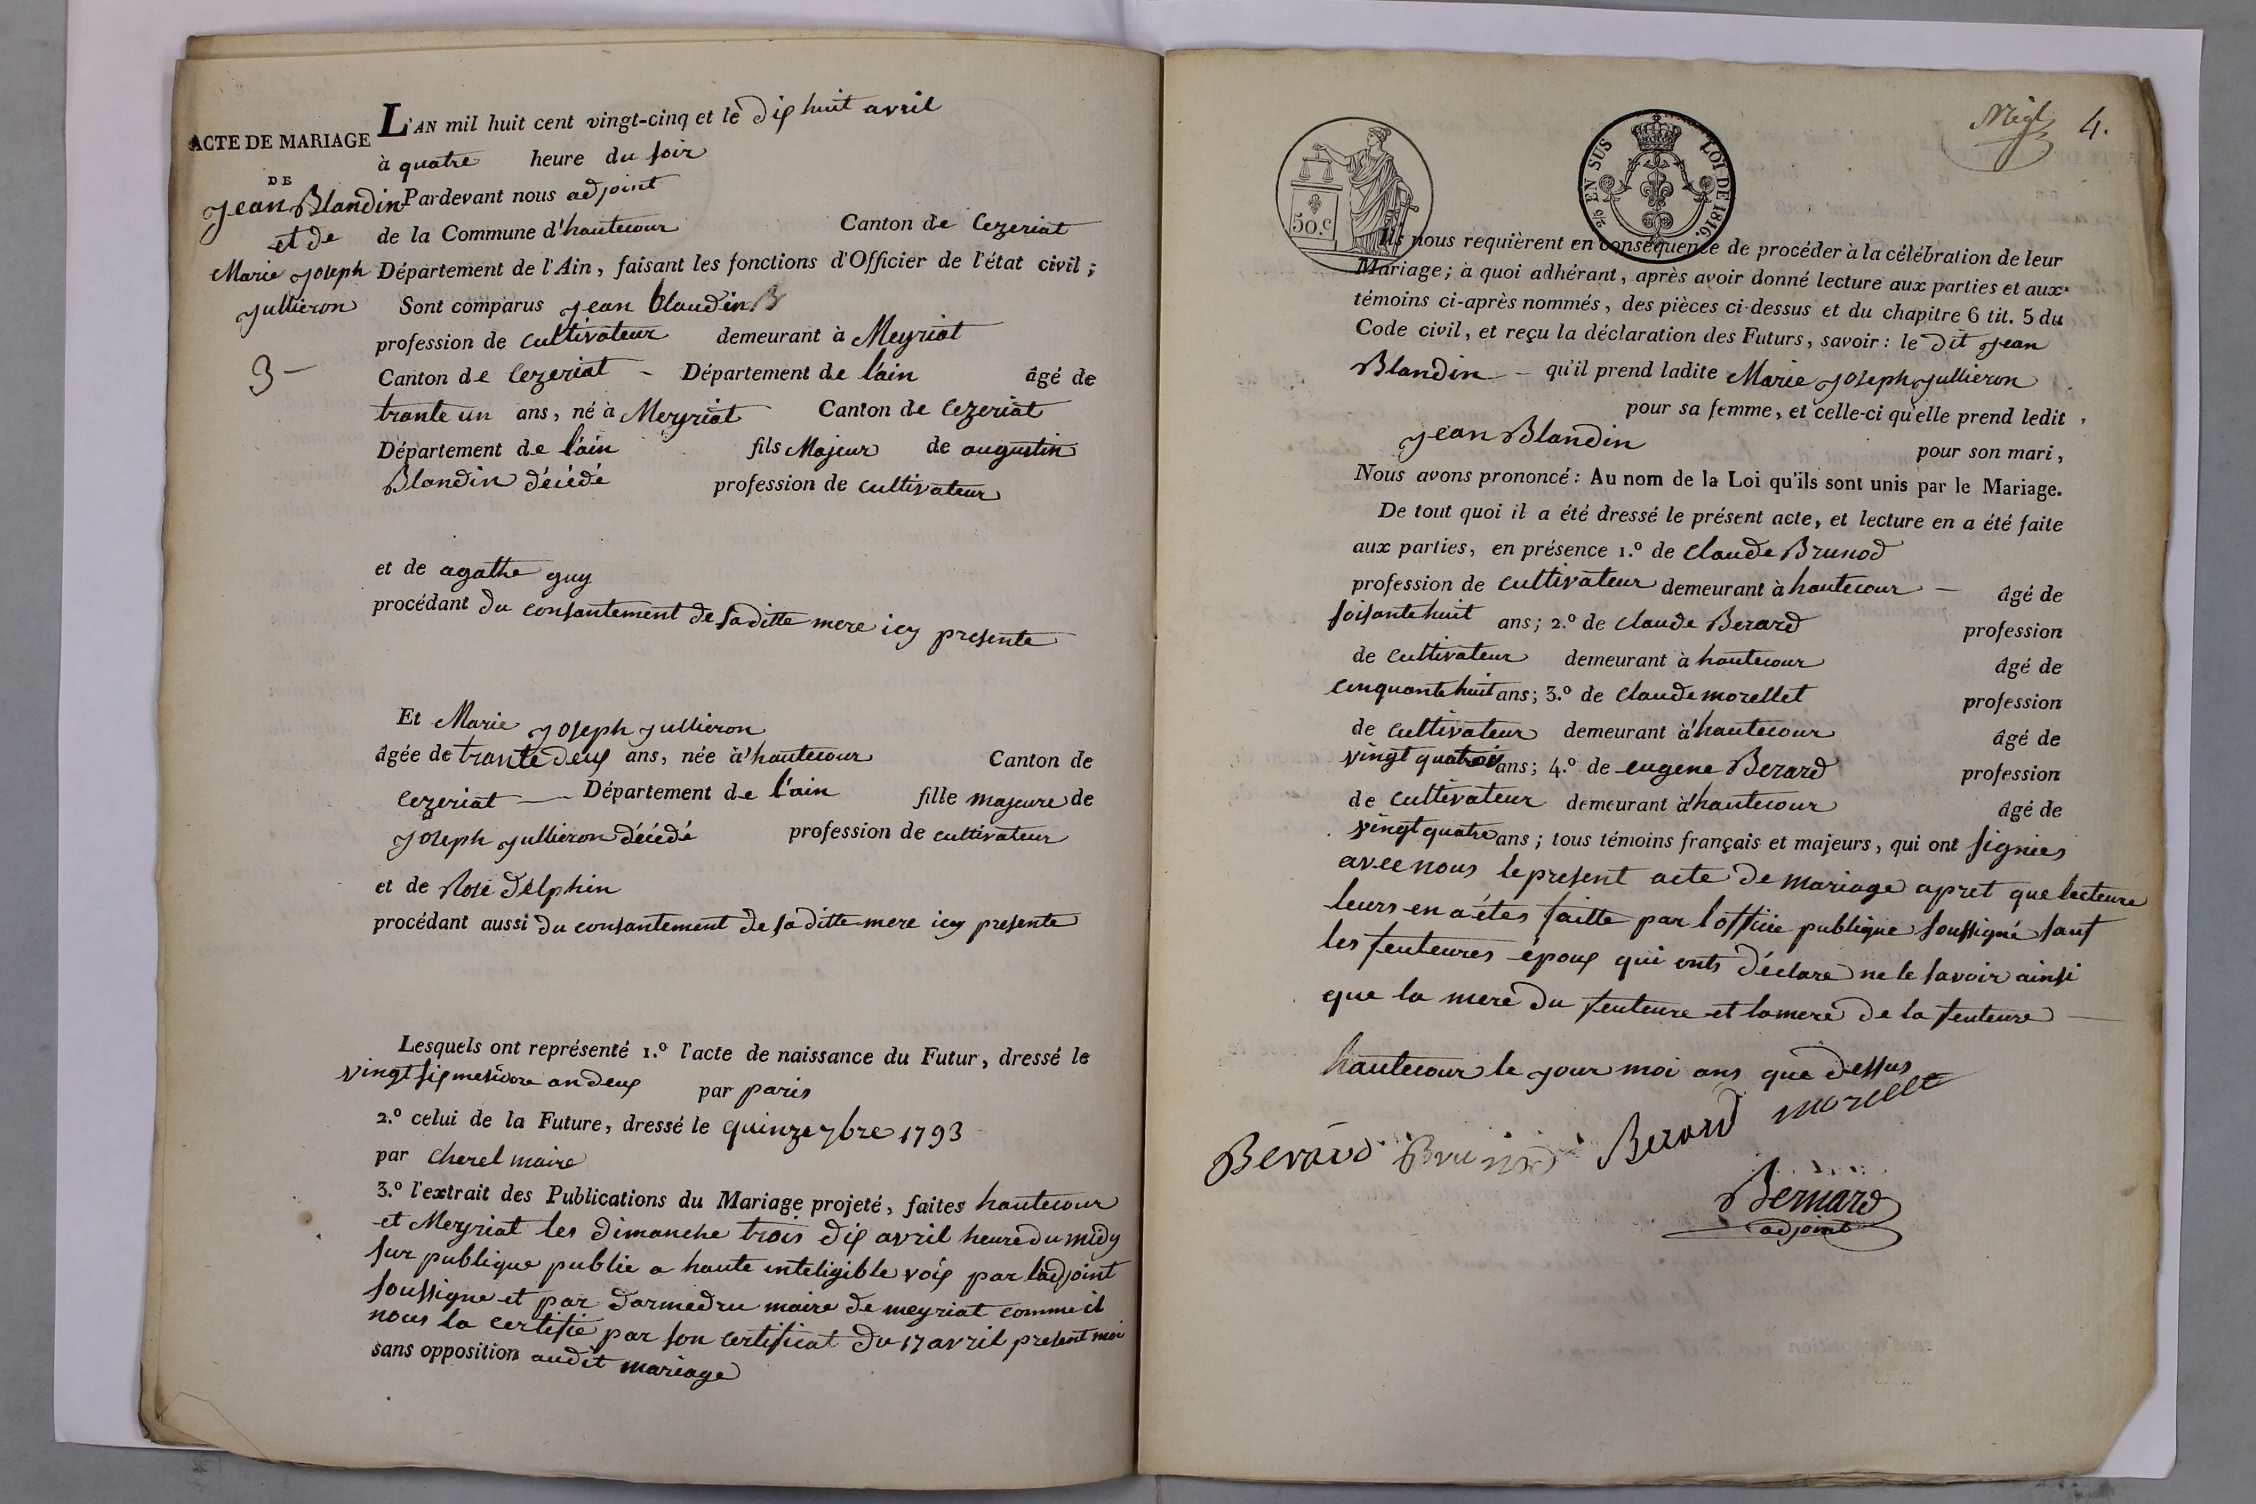 ACTE DE MARIAGE
DE
Jean Blandin
et de
Marie Joseph
Jullieron
3
L'AN mil huit cent vingt-cinq et le dix huit avril
à quatre heure du soir
Pardevant nous adjoint
de la Commune d'hautecour Canton de Cezeriat
Département de l'Ain, faisant les fonctions d'Officier de l'état civil;
Sont comparus Jean Blandin
profession de cultivateur demeurant à Meyriat
Canton de Cezeriat – Département de l'ain âgé de
trante un ans, né à Meyriat Canton de Cezeriat
Département de l'ain fils Majeur de augustin
Blandin décédé profession de cultivateur
et de agathe guy
procédant du consantement de sa ditte mere icy presente
Et Marie Joseph Jullieron
âgée de trante deux ans, née à hautecour Canton de
Cezeriat — Département de l'ain fille majeure de
Joseph Jullieron décédé profession de cultivateur
et de Rose Delphin
procédant aussi du consantement de sa ditte mere icy presente
Lesquels ont représenté 1.º l'acte de naissance du Futur, dressé le
vingt six mesidore an deux par paris
2.º celui de la Future, dressé le quinze 7bre 1793
par Cherel maire
3.º l'extrait des Publications du Mariage projeté, faites hautecour
et Meyriat les dimanche trois dix avril heure du midy
sur publique publie a haute inteligible voix par l'adjoint
soussigne et par Darmedru maire de meyriat comme il
nous la certifie par son certificat du 17 avril present moi
sans opposition audit mariage
4.
50.c
2/6 EN SUS LOI DE 1816.
Ils nous requièrent en conséquence de procéder à la célébration de leur
Mariage; à quoi adhérant, après avoir donné lecture aux parties et aux
témoins ci-après nommés, des pièces ci-dessus et du chapitre 6 tit. 5 du
Code civil, et reçu la déclaration des Futurs, savoir: le dit Jean
Blandin – qu'il prend ladite Marie Joseph Jullieron
pour sa femme, et celle-ci qu'elle prend ledit
Jean Blandin pour son mari,
Nous avons prononcé: Au nom de la Loi qu'ils sont unis par le Mariage.
De tout quoi il a été dressé le présent acte, et lecture en a été faite
aux parties, en présence 1.º de Claude Brunod
profession de cultivateur demeurant à hautecour – âgé de
soisante huit ans; 2.º de Claude Berard profession
de cultivateur demeurant à hautecour âgé de
cinquante huit ans; 3.º de Claude morellet profession
de cultivateur demeurant à hautecour âgé de
vingt quatre ans; 4.º de eugene Berard profession
de cultivateur demeurant à hautecour âgé de
vingt quatre ans; tous témoins français et majeurs, qui ont signies
avec nous le present acte de mariage apret que lecteure
leurs en a étes faitte par l'office publique soussigné sauf
les feuteures époux qui onts déclare ne le savoir ainsi
que la mere du feuteure et la mere de la feuteure —
hautecour le jour moi ans que dessus
Berard Brunod Berard morellet
Bernard
adjoint